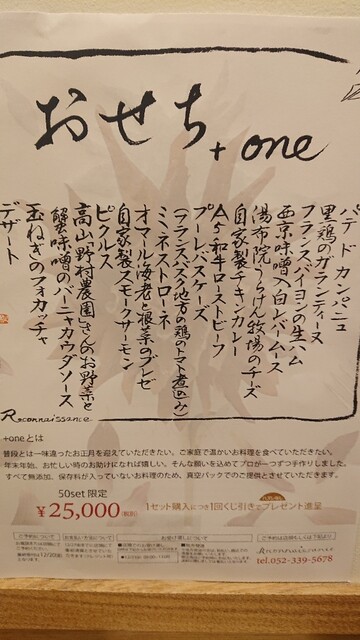 おせち + one
パテ ド カンパニュ
里鶏のガランティーヌ
フランスバイヨンの生ハム
西京味噌入白レバームース
湯布院うらけん牧場のチーズ
自家製チキンカレー
A5和牛ローストビーフ
プーレバスケーズ
(フランスバスク地方の鶏のトマト煮込み)
ミネストローネ
オマール海老と根菜のブレゼ
自家製スモークサーモン
ピクルス
高山「野村農園」さんのお野菜と
蟹味噌のバーニャカウダソース
玉ねぎのフォカッチャ
デザート
Reconnaissance
+oneとは
普段とは一味違ったお正月を迎えていただきたい。ご家庭で温かいお料理を食べていただきたい。
年末年始、お忙しい時のお助けになれば嬉しい。そんな願いを込めてプロが一つずつ手作りしました。
すべて無添加、保存料が入っていないお料理のため、真空パックでのご提供とさせていただきます。
50set 限定
¥25,000(税別)
1セット購入につき1回くじ引きでプレゼント進呈
ご予約について
お支払い方法について
お渡し方法について
Reconnaissance
tel.052-339-5678